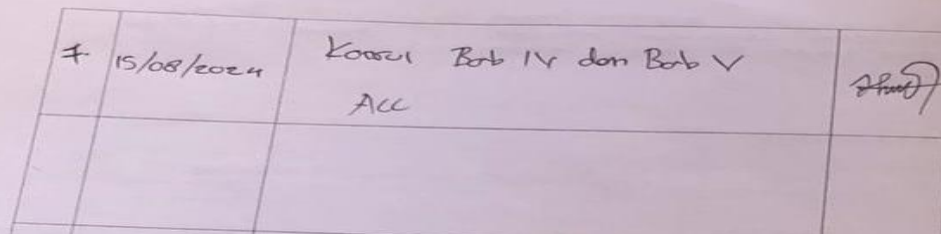 7. 15/08/2024 Konsul Bab IV dan Bab V
ACC